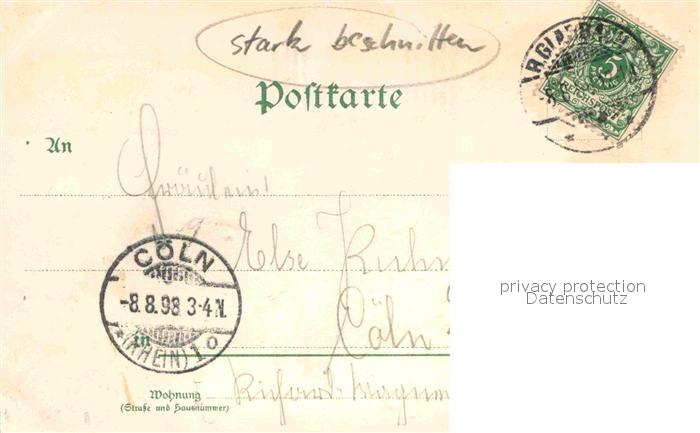 stark beschnitten
Postkarte
5
REICHSPOST
An
Fräulein
Else Kuhn
CÖLN
-8.8.98 3-4N.
*(RHEIN) 1 o
in
Cöln
Richard-Wagner
Wohnung
(Straße und Hausnummer)
privacy protection
Datenschutz